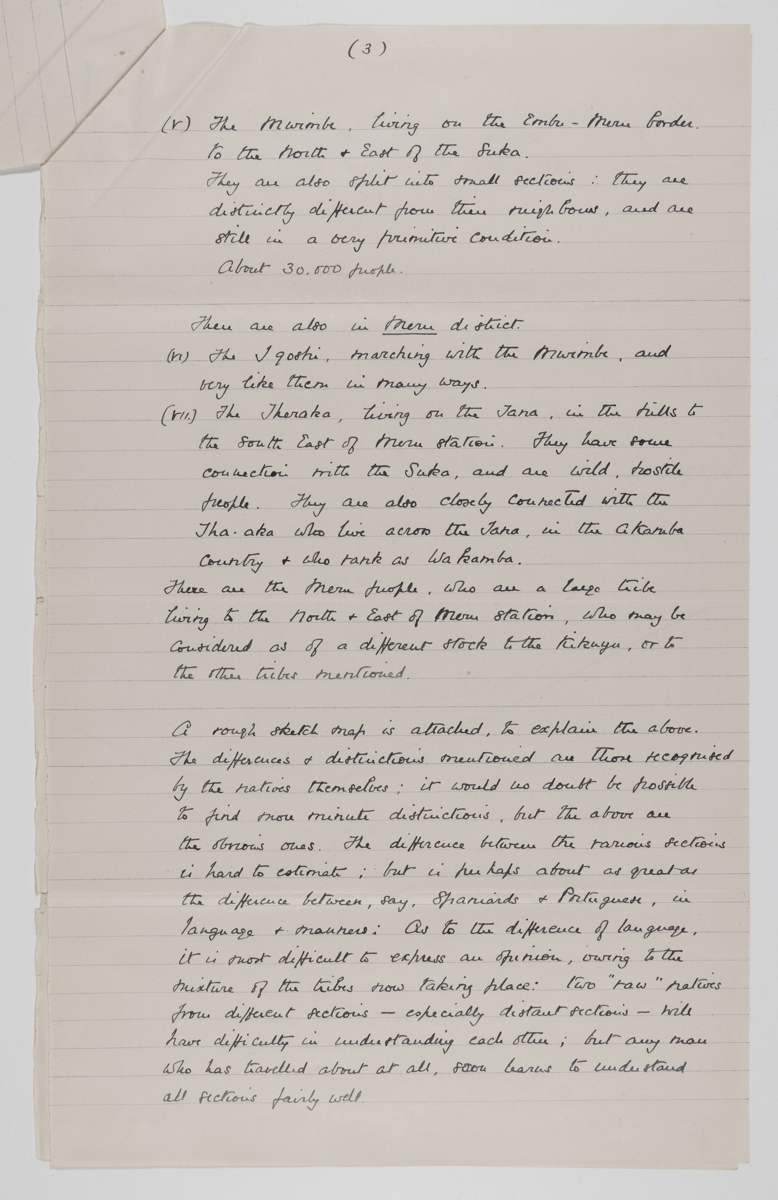 (3)
(V) The Mwimbe, living on the Embu - Meru border.
to the North & East of the Suka.
They are also split into small sections : they are
distinctly different from their neighbours, and are
still in a very primitive condition.
About 30.000 people.
There are also in Meru district.
(VI) The Igoshi, marching with the Mwimbe, and
very like them in many ways.
(VII.) The Theraka, living on the Tana, in the hills to
the South East of Meru station. They have some
connection with the Suka, and are wild, hostile
people. They are also closely connected with the
Tha.aka who live across the Tana, in the Akamba
Country & who rank as Wakamba.
There are the Meru people, who are a large tribe
living to the North & East of Meru station, who may be
considered as of a different stock to the Kikuyu, or to
the other tribes mentioned.
A rough sketch map is attached, to explain the above.
The differences & distinctions mentioned are those recognised
by the natives themselves ; it would no doubt be possible
to find more minute distinctions, but the above are
the obvious ones. The difference between the various sections
is hard to estimate ; but is perhaps about as great as
the difference between, say, Spaniards & Portuguese, in
language & manners: As to the difference of language,
it is most difficult to express an opinion, owing to the
mixture of the tribes now taking place: two "raw" natives
from different sections — especially distant sections — will
have difficulty in understanding each other ; but any man
who has travelled about at all, soon learns to understand
all sections fairly well.